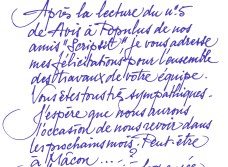 Après la lecture du n°5
de Avis à Fopulus de nos
amis "Scripsit" je vous adresse
mes félicitations pour l'ensemble
des travaux de votre équipe.
Vous êtes tous très sympathiques.
J'espère que nous aurons
l'occasion de nous revoir dans
les prochains mois. Peut-être
à Mâcon.....?